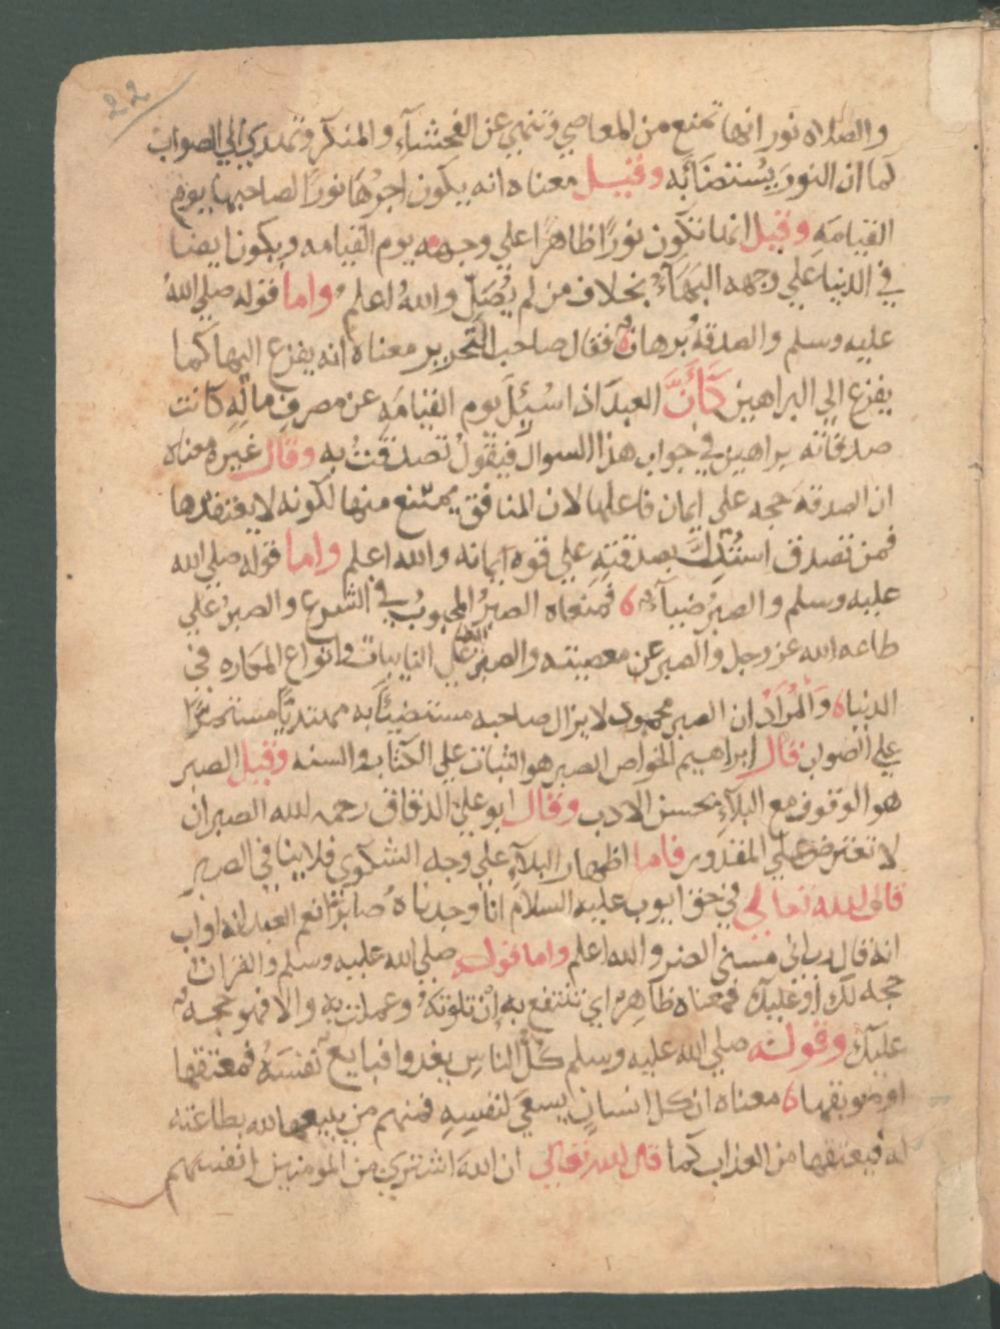 22
والصلاه نور انها تمنع من المعاصي وتنهي عن الفحشآءِ والمنكر وتهدي الي الصواب
كما ان النورَ يُستضَآئُ به وقيل معناه انه يكون اجرُهَا نورًا لصاحبها يوم
القيامَهِ وقيل انها تكون نورًا ظاهرًا علي وجهه يوم القيامه ويكون ايضا
في الدنيا علي وجهه البَهَآءُ بخلاف من لم يُصَلِّ واللهُ اعلم واما قوله صلي الله
عليه وسلم والصدقهُ برهان فقال صاحب التحرير معناه انه يفزع اليها كما
يفزع الي البراهين كَأَنَّ العبدَ اذا سُئِلَ يوم القيامَهِ عن مصرفِ مالِهِ كانت
صدقاته براهين في جواب هذا السوال فيقولُ تصدقتُ به وقال غيره معناه
ان الصدقهَ حجه علي ايمان فاعلها لان المنافق يمتنع منها لكونه لا يعتقدها
فمن تصدق استُدِلَّ بصدقتِهِ علي قوه ايمانه والله اعلم واما قوله صلي الله
عليه وسلم والصبرُ ضيآء فمعناه الصبرُ المحبوبُ في الشرع والصبرُ علي
طاعه الله عز وجل والصبر عن معصيته والصبر علي النايبات وانواع المكاره في
الدنيا وَالمُرَادُ ان الصبر محمود لا يزال صاحبه مستضيئًا به مهتديًا مستمرًا
علي الصواب قال ابراهيم الخواص الصبر هو الثبات علي الكتاب والسنه وقيل الصبر
هو الوقوف مع البلآءِ بحسن الادب وقال ابو علي الدقاق رحمه الله الصبر ان
لا تعترض علي المقدور فاما اظهار البلآءِ علي وجه الشكوي فلا ينافي الصبر
قال الله تعالي في حق ايوب عليه السلام انا وجدناهُ صابرًا نعم العبد انه اواب
انه قال رب اني مسني الضر والله اعلم واما قوله صلي الله عليه وسلم والقران
حجه لك او عليك فمعناه ظاهر اي تنتفع به اِن تلوتَهُ وعملت به والا فهو حجه
عليك وقوله صلي الله عليه وسلم كُلُّ الناسِ يغدوا فبايع نفسَهُ فمعتقها
او موبقها معناه ان كل انسانٍ يسعَي لنفسِهِ فمنهم من يبيعها لله بطاعته
له فيعتقها من العذاب كما قال الله تعالي ان الله اشتري من المومنين انفسهم